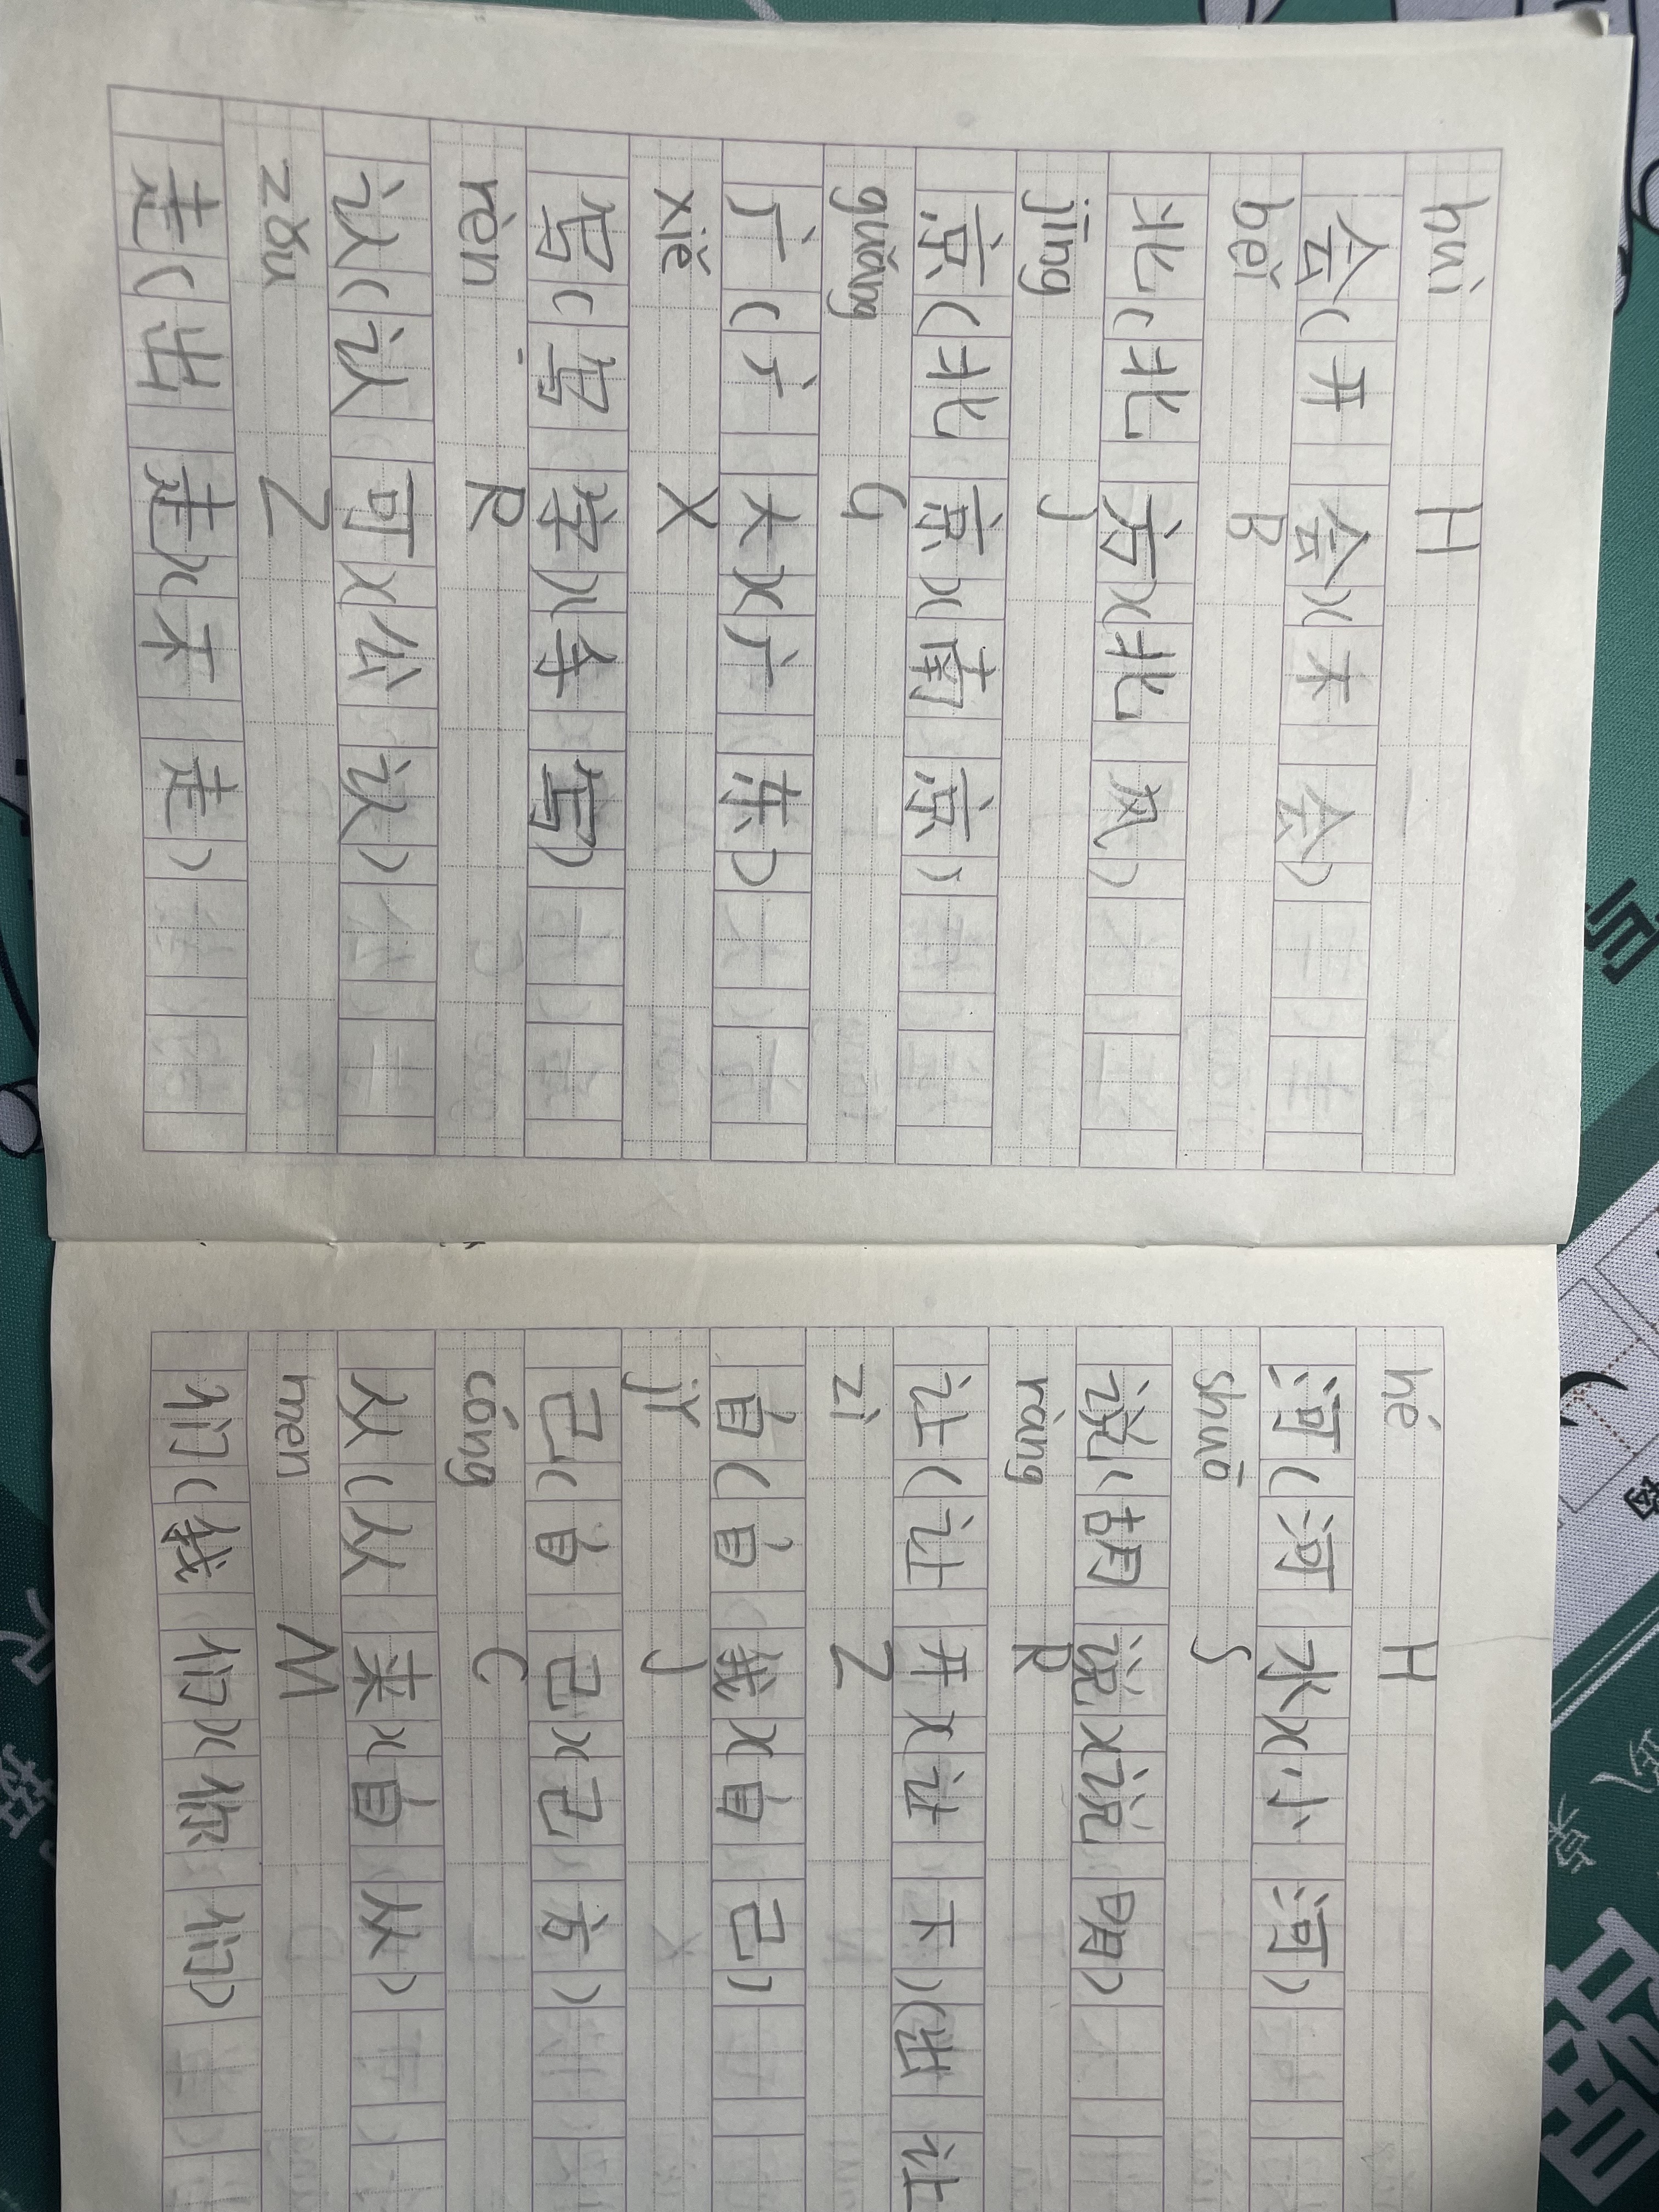 huì H
会(开会)(不会)
běi B
北(北方)(北风)
jīng J
京(北京)(南京)
guǎng G
广(广大)(广东)
xiě X
写(写字)(手写)
rèn R
认(认可)(公认)
zǒu Z
走(出走)(不走)
hé H
河(河水)(小河)
shuō S
说(胡说)(说明)
ràng R
让(让开)(让下)(出让
zì Z
自(自我)(自己)
jǐ J
己(自己)(己方)
cóng C
从(从来)(自从)
men M
们(我们)(你们)